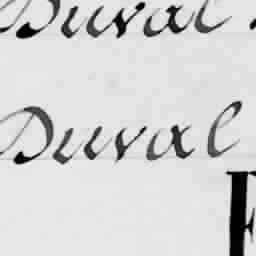 Duval.
Duval
F